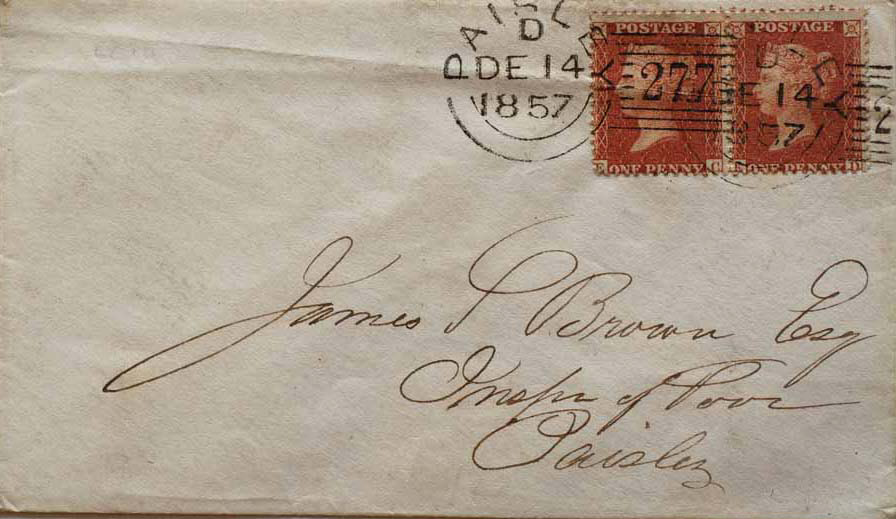 PAISLEY
D
DE 14
1857
277
POSTAGE
ONE PENNY
E C
POSTAGE
ONE PENNY
D
DE 14
57
2
James P Brown Esq
Inspr of Poor
Paisley